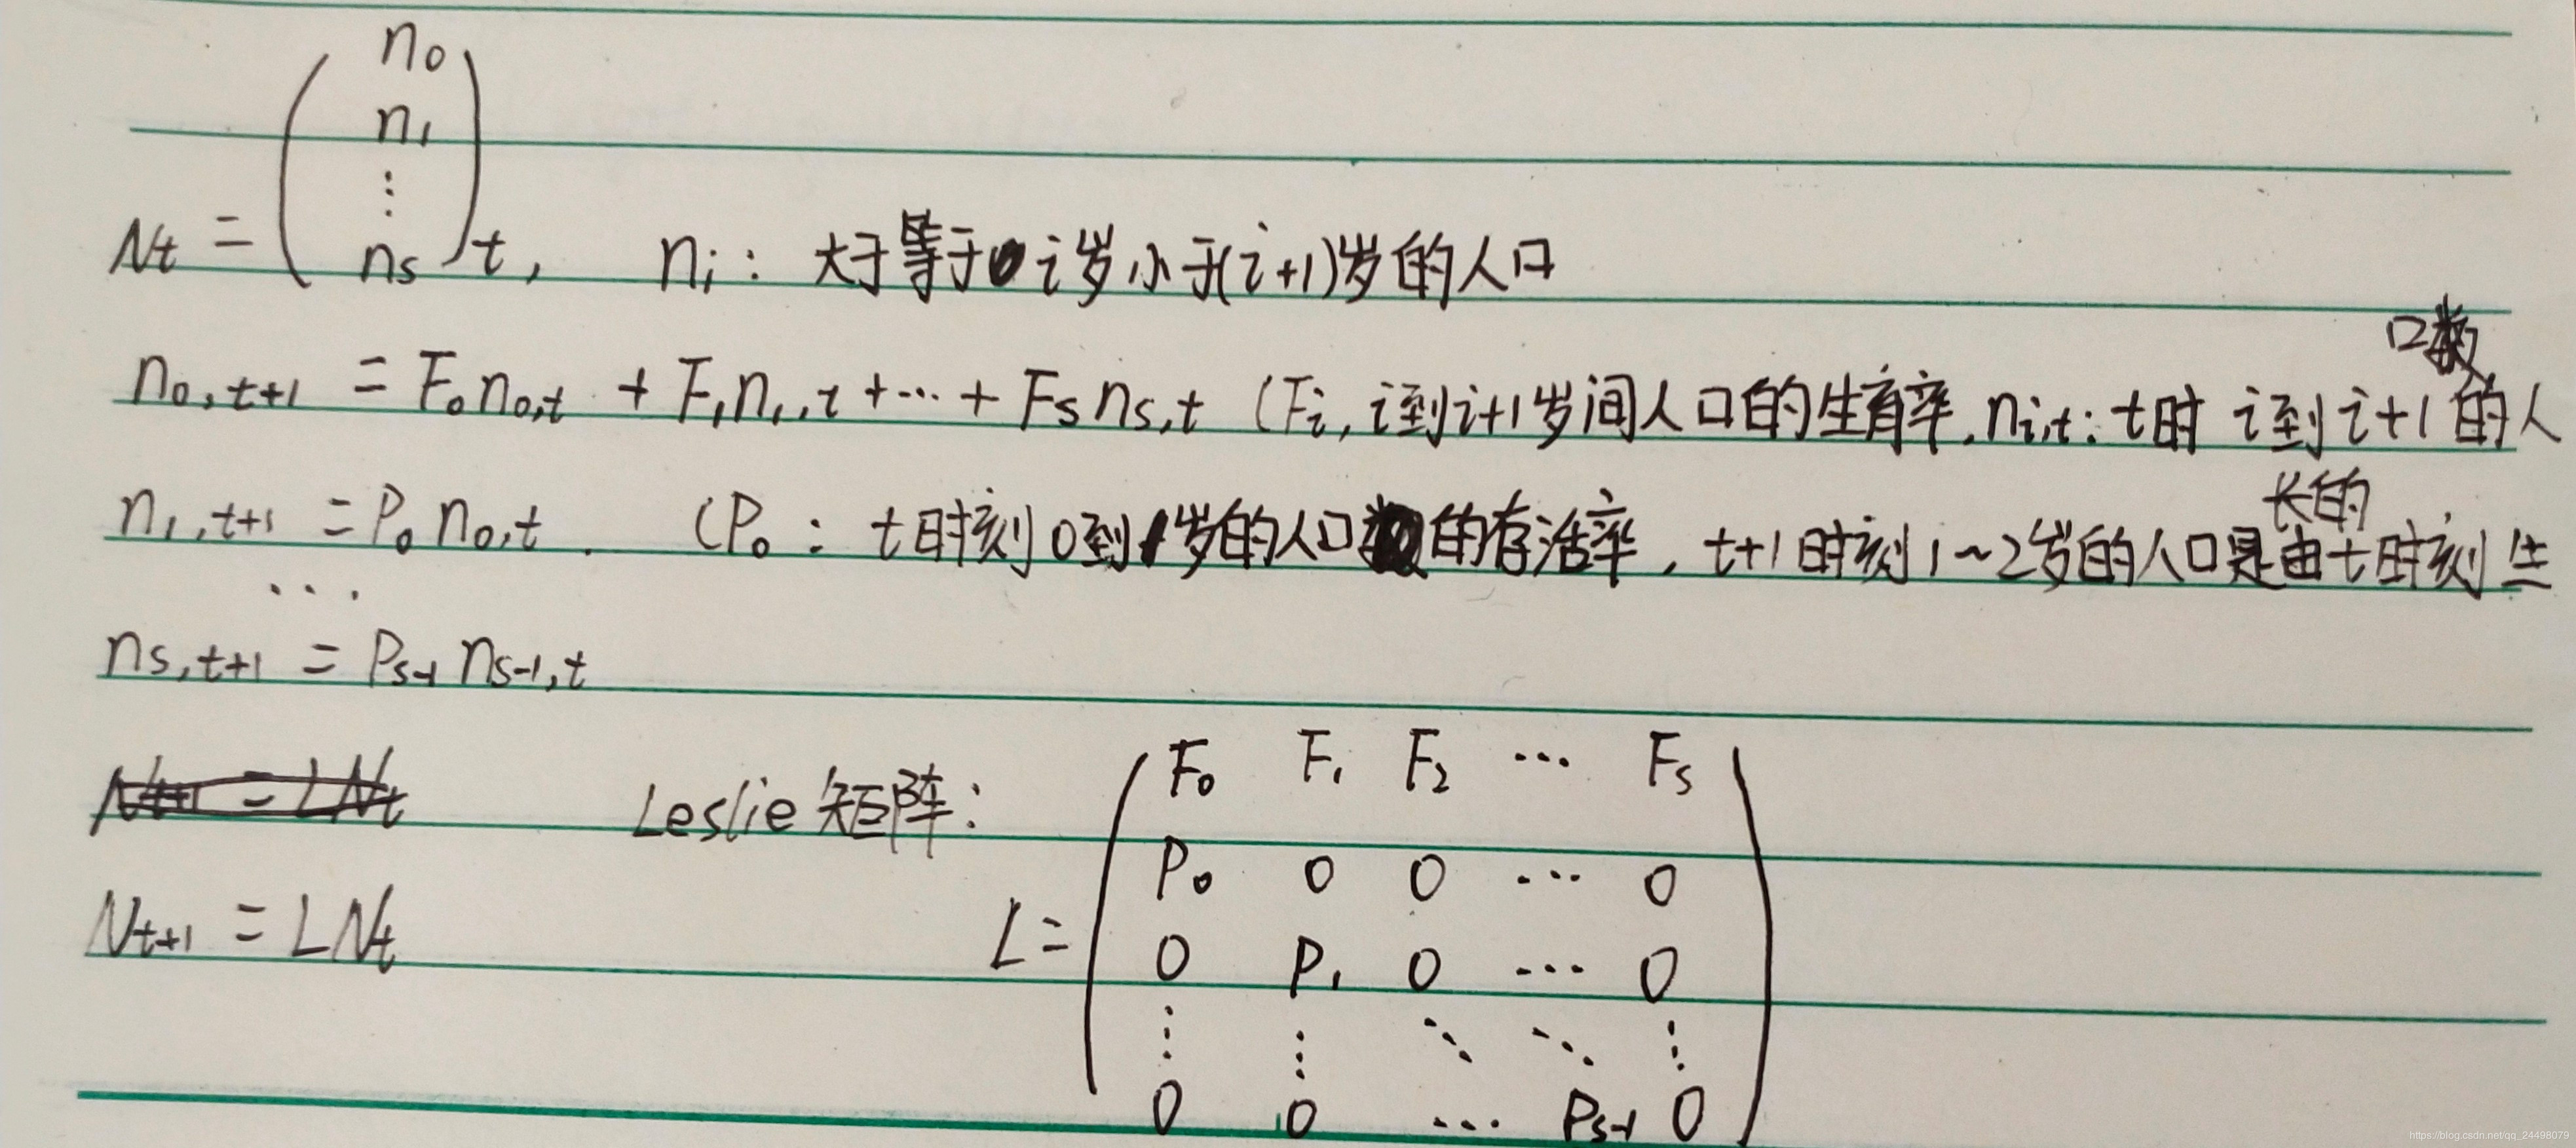 N_t = ( n_0 n_1 ⋮ n_s )_t , n_i : 大于等于 i岁小于(i+1)岁的人口
n_{0,t+1} = F_0 n_{0,t} + F_1 n_{1,t} + ⋯ + F_s n_{s,t} (F_i, i到i+1岁间人口的生育率. n_{i,t}: t时 i到i+1的人口数
n_{1,t+1} = P_0 n_{0,t} . (P_0 : t时刻0到1岁的人口的存活率, t+1时刻1~2岁的人口是由t时刻生长的
⋯
n_{s,t+1} = P_{s-1} n_{s-1,t}
Leslie矩阵:
N_{t+1} = L N_t
L = ( F_0 F_1 F_2 ⋯ F_s
P_0 0 0 ⋯ 0
0 P_1 0 ⋯ 0
⋮ ⋮ ⋱ ⋱ ⋮
0 0 ⋯ P_{s-1} 0 )
https://blog.csdn.net/qq_24498079